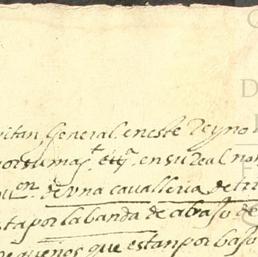 pitan General en este Reyno
por su mag.t etc.ª en su Real nom
on de una cavalleria de tierr
sta por la banda de abaxo de
pequeños que estan por baxo